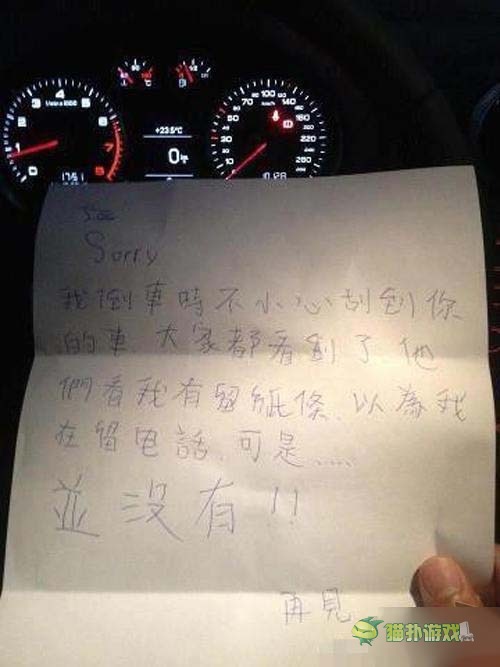 Sorry
我倒車時不小心刮到你
的車.大家都看到了.他
們看我有留紙條.以為我
在留电話.可是.....
並沒有!!
再見
猫扑游戏
+23.5°C
0
1/min x 1000
1 2 3 4 5 6 7 8
km/h